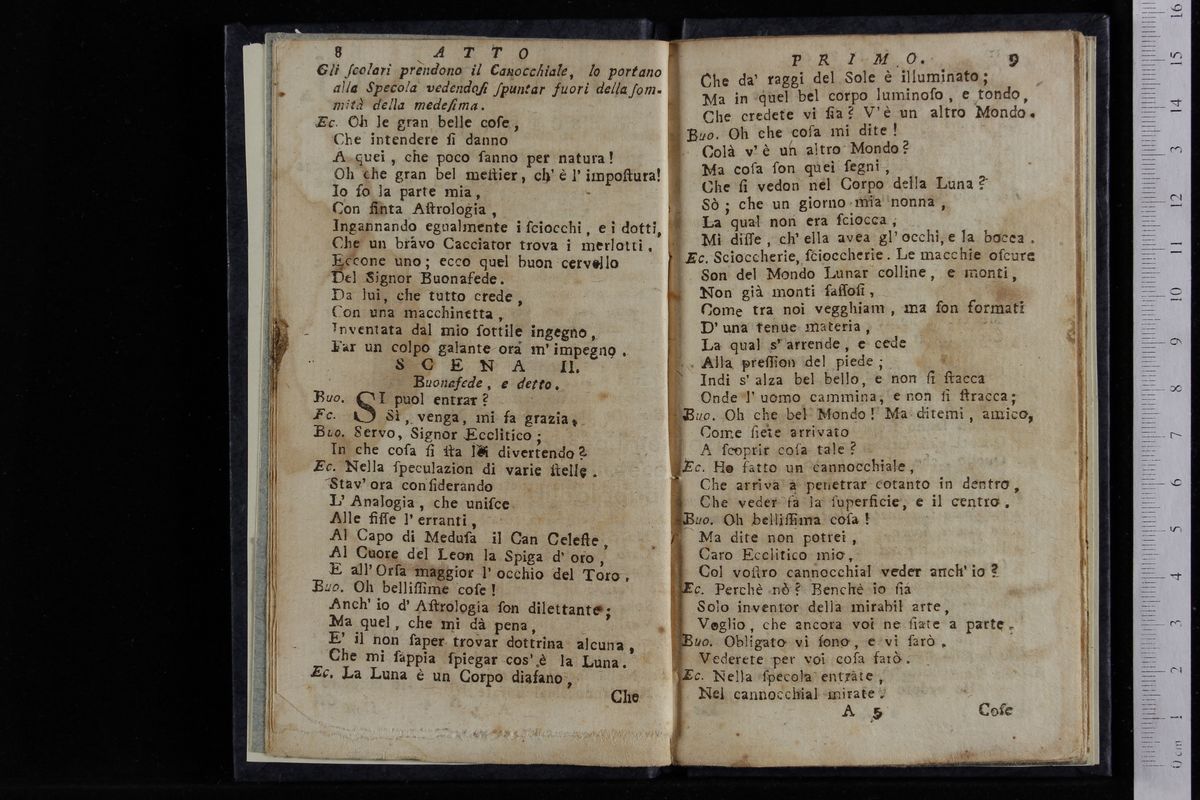 8 ATTO
Gli ſcolari prendono il Canocchiale, lo portano
alla Specola vedendoſi ſpuntar fuori della ſom-
mità della medeſima.
Ec. Oh le gran belle coſe,
Che intendere ſi danno
A quei, che poco ſanno per natura!
Oh che gran bel meſtier, ch' è l' impoſtura!
Io fo la parte mia,
Con finta Aſtrologia,
Ingannando egualmente i ſciocchi, e i dotti,
Che un bravo Cacciator trova i merlotti.
Eccone uno; ecco quel buon cervello
Del Signor Buonafede.
Da lui, che tutto crede,
Con una macchinetta,
Inventata dal mio ſottile ingegno,
Far un colpo galante ora m' impegno.
SCENA II.
Buonafede, e detto.
Buo. SI puol entrar?
Ec. Sì, venga, mi fa grazia,
Buo. Servo, Signor Ecclitico;
In che coſa ſi ſta lei divertendo?
Ec. Nella ſpeculazion di varie ſtelle.
Stav' ora conſiderando
L' Analogia, che uniſce
Alle fiſſe l' erranti,
Al Capo di Meduſa il Can Celeſte,
Al Cuore del Leon la Spiga d' oro,
E all' Orſa maggior l' occhio del Toro.
Buo. Oh belliſſime coſe!
Anch' io d' Aſtrologia ſon dilettante;
Ma quel, che mi dà pena,
E' il non ſaper trovar dottrina alcuna,
Che mi ſappia ſpiegar cos' è la Luna.
Ec. La Luna è un Corpo diafano,
Che
PRIMO. 9
Che da' raggi del Sole è illuminato;
Ma in quel bel corpo luminoſo, e tondo,
Che credete vi ſia? V' è un altro Mondo.
Buo. Oh che coſa mi dite!
Colà v' è un altro Mondo?
Ma coſa ſon quei ſegni,
Che ſi vedon nel Corpo della Luna?
Sò; che un giorno mia nonna,
La qual non era ſciocca,
Mi diſſe, ch' ella avea gl' occhi, e la bocca.
Ec. Scioccherie, ſcioccherie. Le macchie oſcure
Son del Mondo Lunar colline, e monti,
Non già monti ſaſſoſi,
Come tra noi vegghiam, ma ſon formati
D' una tenue materia,
La qual s' arrende, e cede
Alla preſſion del piede;
Indi s' alza bel bello, e non ſi ſtacca
Onde l' uomo cammina, e non ſi ſtracca;
Buo. Oh che bel Mondo! Ma ditemi, amico,
Come ſiete arrivato
A ſcoprir coſa tale?
Ec. Ho fatto un cannocchiale,
Che arriva a penetrar cotanto in dentro,
Che veder fa la ſuperficie, e il centro.
Buo. Oh belliſſima coſa!
Ma dite non potrei,
Caro Ecclitico mio,
Col voſtro cannocchial veder anch' io?
Ec. Perchè nò? Benchè io ſia
Solo inventor della mirabil arte,
Voglio, che ancora voi ne ſiate a parte.
Buo. Obligato vi ſono, e vi ſarò.
Vederete per voi coſa farò.
Ec. Nella ſpecola entrate,
Nel cannocchial mirate.
A 5 Coſe
0 cm 1 2 3 4 5 6 7 8 9 10 11 12 13 14 15 16